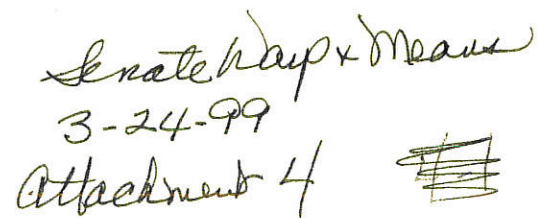 Senate Ways & Means
3-24-99
Attachment 4